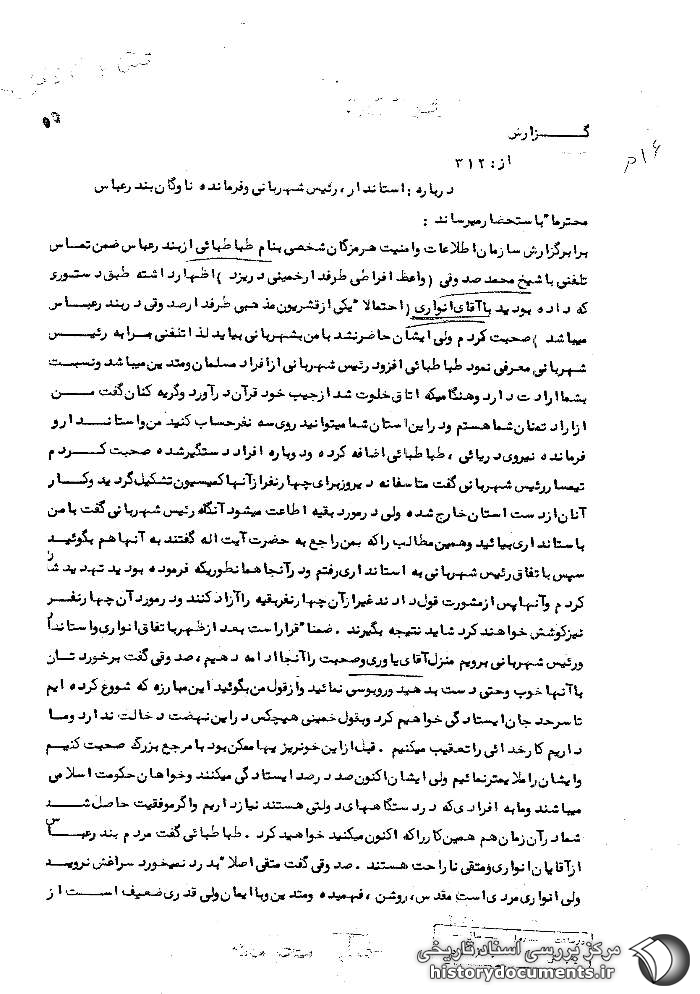 ۵۶
۱۶م
گـــزارش
از: ۳۱۲
درباره: استاندار، رئیس شهربانی وفرمانده ناوگان بندرعباس
محترما" باستحضار میرساند :
برابرگزارش سازمان اطلاعات وامنیت هرمزگان شخصی بنام طباطبائی ازبندرعباس ضمن تماس
تلفنی با شیخ محمد صدوقی (واعظ افراطی طرفدارخمینی دریزد) اظهارداشته طبق دستوری
که داده بودید باآقای انواری (احتمالا" یکی ازقشریون مذهبی طرفدارصدوقی دربندرعبـاس
میباشد) صحبت کردم ولی ایشان حاضرنشد با من بشهربانی بیاید لذا تلفنی مرا به رئیـس
شهربانی معرفی نمود طباطبائی افزود رئیس شهربانی ازافراد مسلمان ومتدین میباشد ونسبت
بشما ارادت دارد وهنگامیکه اتاق خلوت شد ازجیب خود قرآن درآورد وگریه کنان گفت مـــن
ازارادتمندان شما هستم ودراین استان شما میتوانید روی سه نفرحساب کنید من واستانـــدارو
فرمانده نیروی دریائی ، طباطبائی اضافه کرده ودرباره افراد دستگیرشده صحبت کــردم
تیمسار رئیس شهربانی گفت متاسفانه دیروزبرای چهارنفرازآنها کمیسیون تشکیل گردید وکـار
آنان ازدست استان خارج شده ولی درمورد بقیه اطاعت میشود آنگاه رئیس شهربانی گفت با من
باستانداری بیائید وهمین مطالب راکه بمن راجع به حضرت آیت اله گفتند به آنها هم بگوئیـد
سپس با تفاق رئیس شهربانی به استانداری رفتم ودرآنجا همانطوریکه فرموده بودید تهدیدشان
کردم وآنها پس ازمشورت قول دادند غیرازآن چهارنفربقیه راآزادکنند ودرمورد آن چهارنفــر
نیزکوشش خواهند کرد شاید نتیجه بگیرند . ضمنا" قراراست بعد ازظهربا تفاق انواری واستاندار
ورئیس شهربانی برویم منزل آقای یاوری وصحبت راآنجا ادامه دهیم ، صدوقی گفت برخوردتـان
باآنها خوب وحتی دست بدهید وروبوسی نمائید وازقول من بگوئید این مبارزه که شروع کرده ایم
تاسرحد جان ایستادگی خواهیم کرد وبقول خمینی هیچکس دراین نهضت دخالت ندارد ومـا
داریم کارخدائی راتعقیب میکنیم . قبل ازاین خونریزیها ممکن بود با مرجع بزرگ صحبت کنیـم
وایشان راملایمترنمائیم ولی ایشان اکنون صد درصد ایستادگی میکنند وخواهان حکومت اسلامی
میباشند وما به افرادی که دردستگاههای دولتی هستند نیازداریم واگرموفقیت حاصل شــد
شمادرآن زمان هم همین کارراکه اکنون میکنید خواهیدکرد . طباطبائی گفت مردم بندرعبـاس
ازآقایان انواری ومتقی ناراحت هستند . صدوقی گفت متقی اصلا" بدرد نمیخورد سراغش نرویـد
ولی انواری مردی است مقدس، روشن ، فهمیده ومتدین وبا ایمان ولی قدری ضعیف اســت از
مرکز بررسی اسناد تاریخی
historydocuments.ir